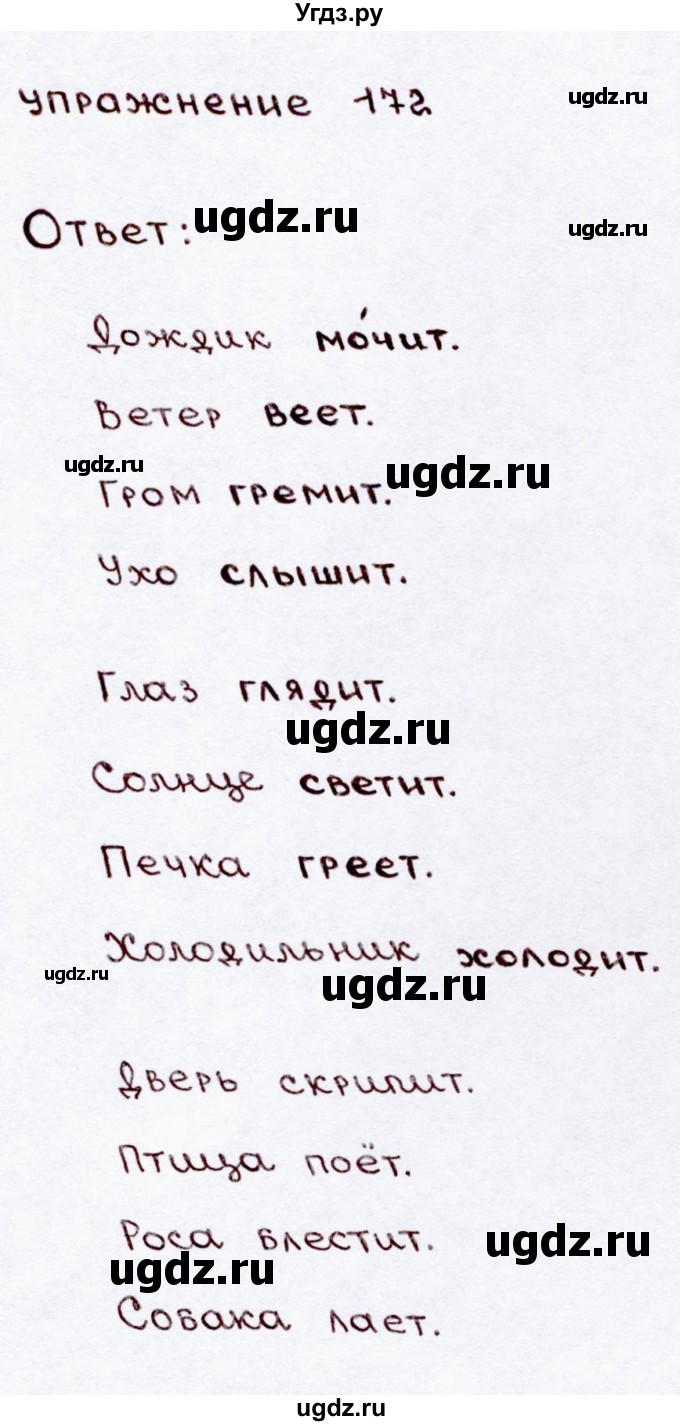 Угдз.ру
упражнение 172
ugdz.ru
Ответ:
ugdz.ru
ugdz.ru
Дождик мо́чит.
Ветер веет.
ugdz.ru
ugdz.ru
Гром гремит.
Ухо слышит.
Глаз глядит.
ugdz.ru
Солнце светит.
Печка греет.
Холодильник холодит.
ugdz.ru
ugdz.ru
Дверь скрипит.
Птица поёт.
Роса блестит.
ugdz.ru
ugdz.ru
Собака лает.
ugdz.ru